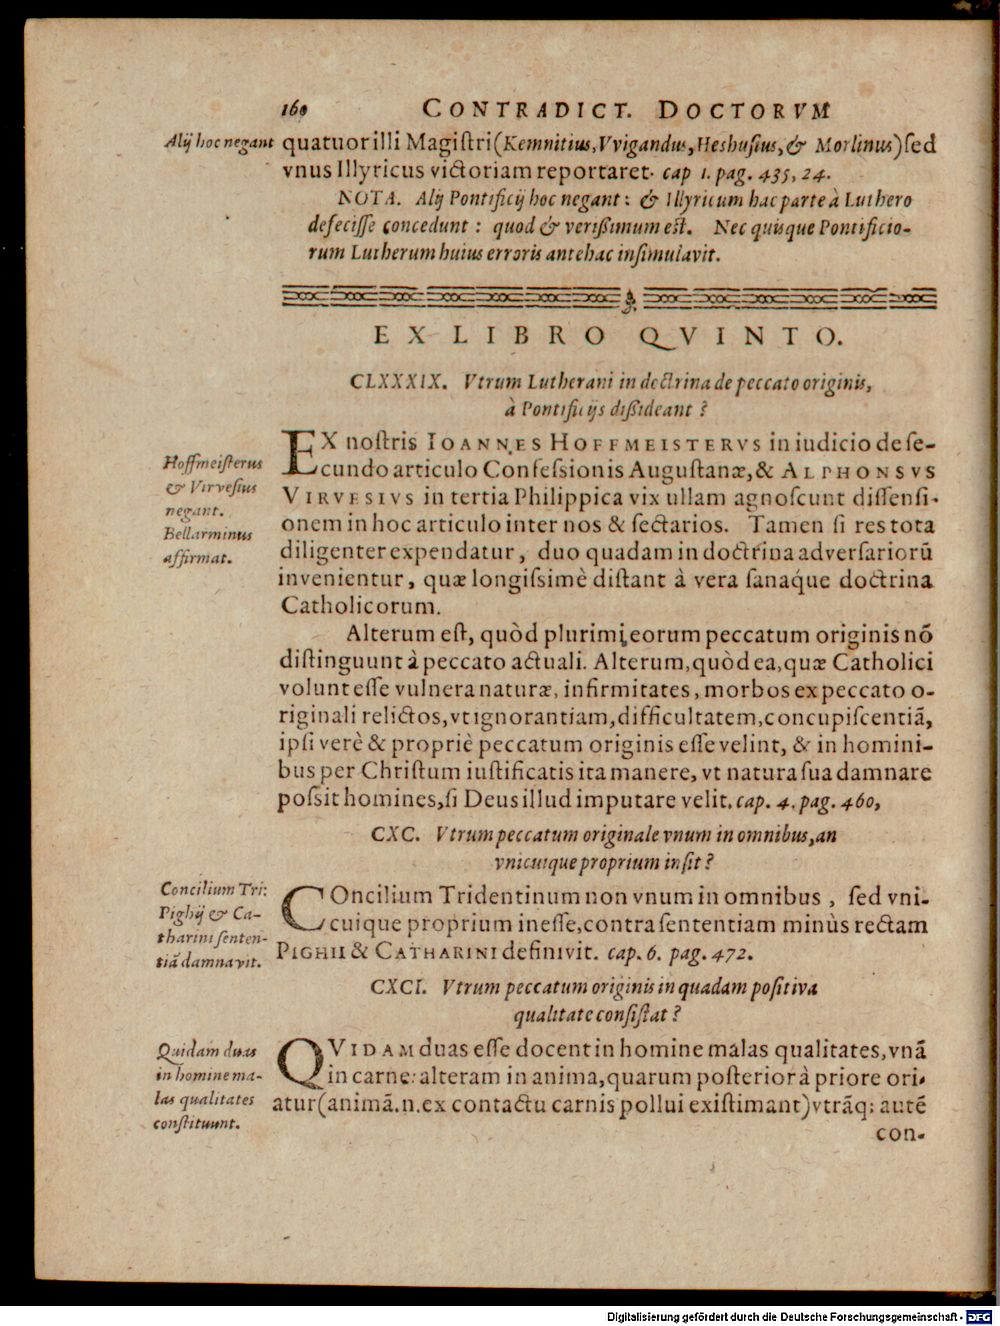 160 CONTRADICT. DOCTORVM
Alij hoc negant
quatuor illi Magiſtri (Kemnitius, Vvigandus, Heshuſius, & Morlinus) ſed
vnus Illyricus victoriam reportaret. cap 1. pag. 435, 24.
NOTA. Alij Pontificij hoc negant: & Illyricum hac parte à Luthero
defeciſſe concedunt: quod & verißimum eſt. Nec quisque Pontificio-
rum Lutherum huius erroris antehac inſimulavit.
EX LIBRO QVINTO.
CLXXXIX. Vtrum Lutherani in doctrina de peccato originis,
à Pontificijs dißideant?
Hoffmeiſterus
& Virveſius
negant.
Bellarminus
affirmat.
EX noſtris IOANNES HOFFMEISTERVS in iudicio de ſe-
cundo articulo Confeſsionis Auguſtanæ, & ALPHONSVS
VIRVESIVS in tertia Philippica vix ullam agnoſcunt diſſenſi-
onem in hoc articulo inter nos & ſectarios. Tamen ſi res tota
diligenter expendatur, duo quadam in doctrina adverſariorũ
invenientur, quæ longiſsimè diſtant à vera ſanaq́ue doctrina
Catholicorum.
Alterum eſt, quòd plurimi eorum peccatum originis nõ
diſtinguunt à peccato actuali. Alterum, quòd ea, quæ Catholici
volunt eſſe vulnera naturæ, infirmitates, morbos ex peccato o-
riginali relictos, vt ignorantiam, difficultatem, concupiſcentiã,
ipſi verè & propriè peccatum originis eſſe velint, & in homini-
bus per Chriſtum iuſtificatis ita manere, vt natura ſua damnare
poſsit homines, ſi Deus illud imputare velit. cap. 4. pag. 460,
CXC. Vtrum peccatum originale vnum in omnibus, an
vnicuique proprium inſit?
Concilium Tri:
Pighij & Ca-
tharini ſenten-
tiã damnavit.
COncilium Tridentinum non vnum in omnibus, ſed vni-
cuique proprium ineſſe, contra ſententiam minùs rectam
PIGHII & CATHARINI definivit. cap. 6. pag. 472.
CXCI. Vtrum peccatum originis in quadam poſitiva
qualitate conſiſtat?
Quidam duas
in homine ma-
las qualitates
conſtituunt.
QVIDAM duas eſſe docent in homine malas qualitates, vnã
in carne: alteram in anima, quarum poſterior à priore ori-
atur (animã.n. ex contactu carnis pollui exiſtimant) vtrãq; autẽ
con-
Digitalisierung gefördert durch die Deutsche Forschungsgemeinschaft - DFG